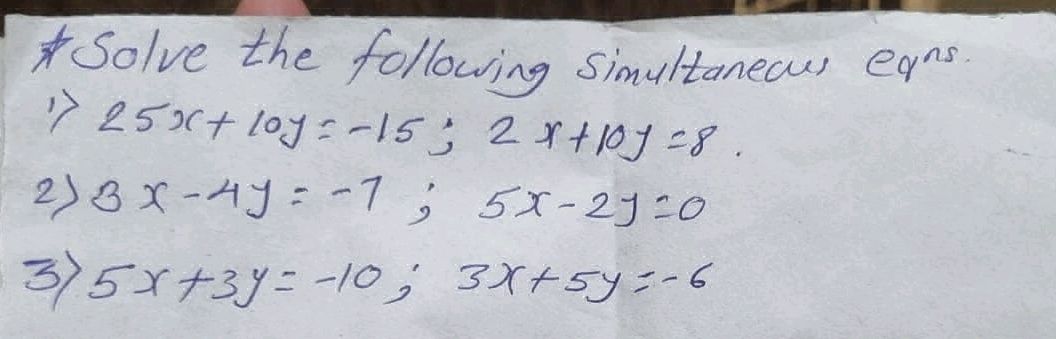 * Solve the following Simultaneous eqns.
1) 25x + 10y = -15 ; 2x + 10y = 8 .
2) 3x - 4y = -7 ; 5x - 2y = 0
3) 5x + 3y = -10 ; 3x + 5y = -6